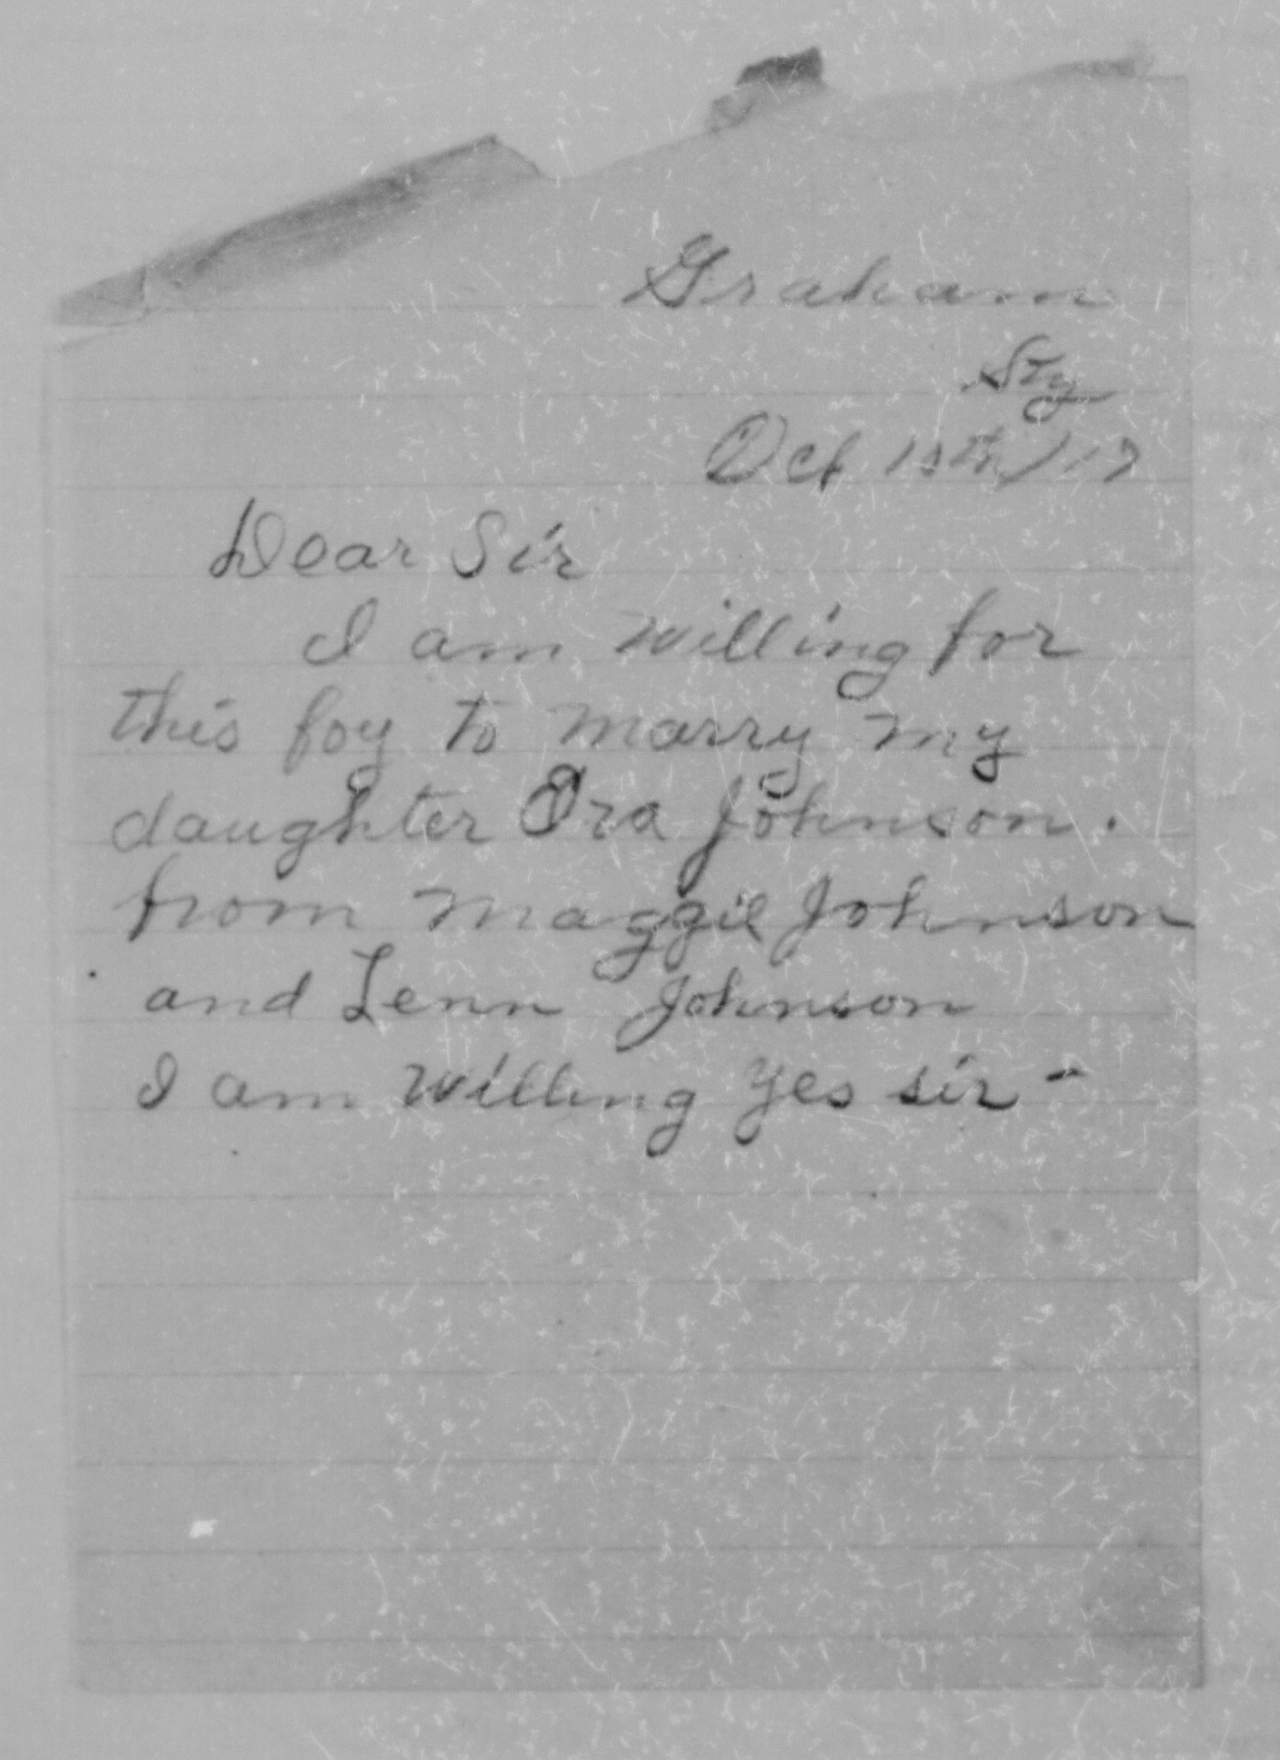 Graham
Ky
Oct 15th/17
Dear Sir
I am willing for
this foy to marry my
daughter Ora Johnson.
from Maggie Johnson
and Lenn Johnson
I am willing yes sir -